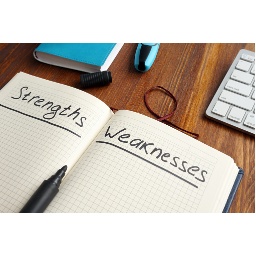 Strengths
Weaknesses